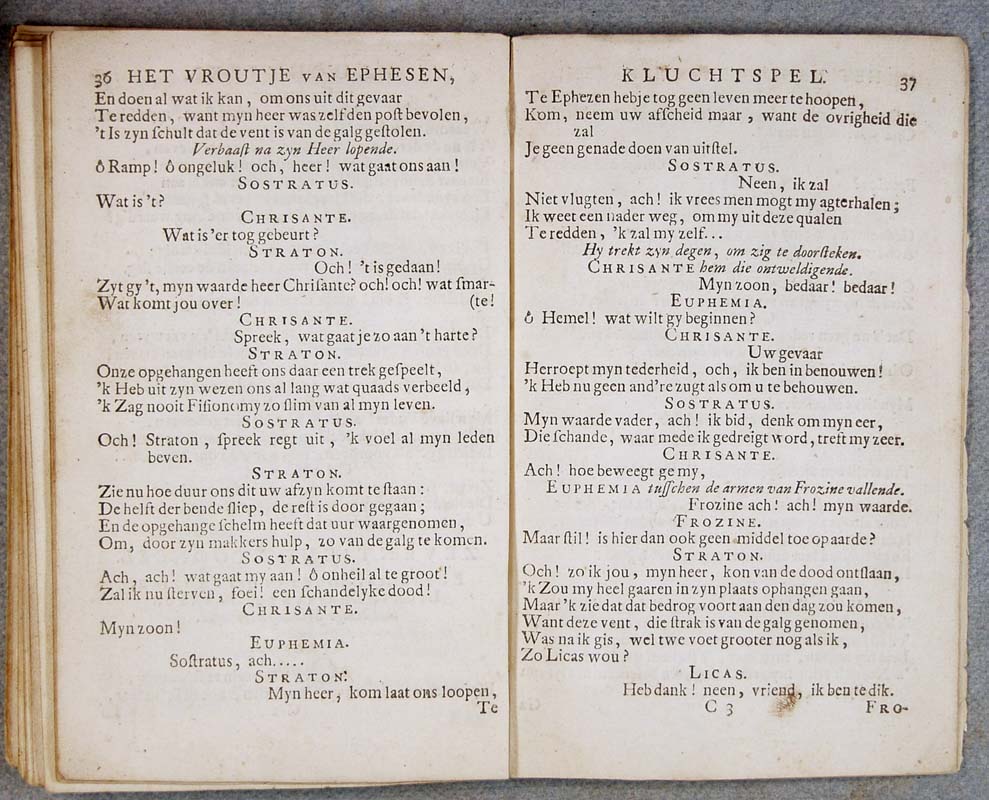 36 HET VROUTJE VAN EPHESEN,
En doen al wat ik kan, om ons uit dit gevaar
Te redden, want myn heer was zelf den post bevolen,
't Is zyn schult dat de vent is van de galg gestolen.
Verbaast na zyn Heer lopende.
ô Ramp! ô ongeluk! och, heer! wat gaat ons aan!
SOSTRATUS.
Wat is 't?
CHRISANTE.
Wat is 'er tog gebeurt?
STRATON.
Och! 't is gedaan!
Zyt gy 't, myn waarde heer Chrisante? och! och! wat smar-
Wat komt jou over! (te!
CHRISANTE.
Spreek, wat gaat je zo aan 't harte?
STRATON.
Onze opgehangen heeft ons daar een trek gespeelt,
'k Heb uit zyn wezen ons al lang wat quaads verbeeld,
'k Zag nooit Fisionomy zo slim van al myn leven.
SOSTRATUS.
Och! Straton, spreek regt uit, 'k voel al myn leden
beven.
STRATON.
Zie nu hoe duur ons dit uw afzyn komt te staan:
De helft der bende sliep, de rest is door gegaan;
En de opgehange schelm heeft dat uur waargenomen,
Om, door zyn makkers hulp, zo van de galg te komen.
SOSTRATUS.
Ach, ach! wat gaat my aan! ô onheil al te groot!
Zal ik nu sterven, foei! een schandelyke dood!
CHRISANTE.
Myn zoon!
EUPHEMIA.
Sostratus, ach.....
STRATON.
Myn heer, kom laat ons loopen,
Te
KLUCHTSPEL. 37
Te Ephezen heb je tog geen leven meer te hoopen,
Kom, neem uw afscheid maar, want de ovrigheid die
zal
Je geen genade doen van uitstel.
SOSTRATUS.
Neen, ik zal
Niet vlugten, ach! ik vrees men mogt my agterhalen;
Ik weet een nader weg, om my uit deze qualen
Te redden, 'k zal my zelf...
Hy trekt zyn degen, om zig te doorsteken.
CHRISANTE hem die ontweldigende.
Myn zoon, bedaar! bedaar!
EUPHEMIA.
ô Hemel! wat wilt gy beginnen?
CHRISANTE.
Uw gevaar
Herroept myn tederheid, och, ik ben in benouwen!
'k Heb nu geen and're zugt als om u te behouwen.
SOSTRATUS.
Myn waarde vader, ach! ik bid, denk om myn eer,
Die schande, waar mede ik gedreigt word, treft my zeer.
CHRISANTE.
Ach! hoe beweegt ge my,
EUPHEMIA tusschen de armen van Frozine vallende.
Frozine ach! ach! myn waarde.
FROZINE.
Maar stil! is hier dan ook geen middel toe op aarde?
STRATON.
Och! zo ik jou, myn heer, kon van de dood ontslaan,
'k Zou my heel gaaren in zyn plaats ophangen gaan,
Maar 'k zie dat dat bedrog voort aan den dag zou komen,
Want deze vent, die strak is van de galg genomen,
Was na ik gis, wel twe voet grooter nog als ik,
Zo Licas wou?
LICAS.
Heb dank! neen, vriend, ik ben te dik.
C 3 FRO-